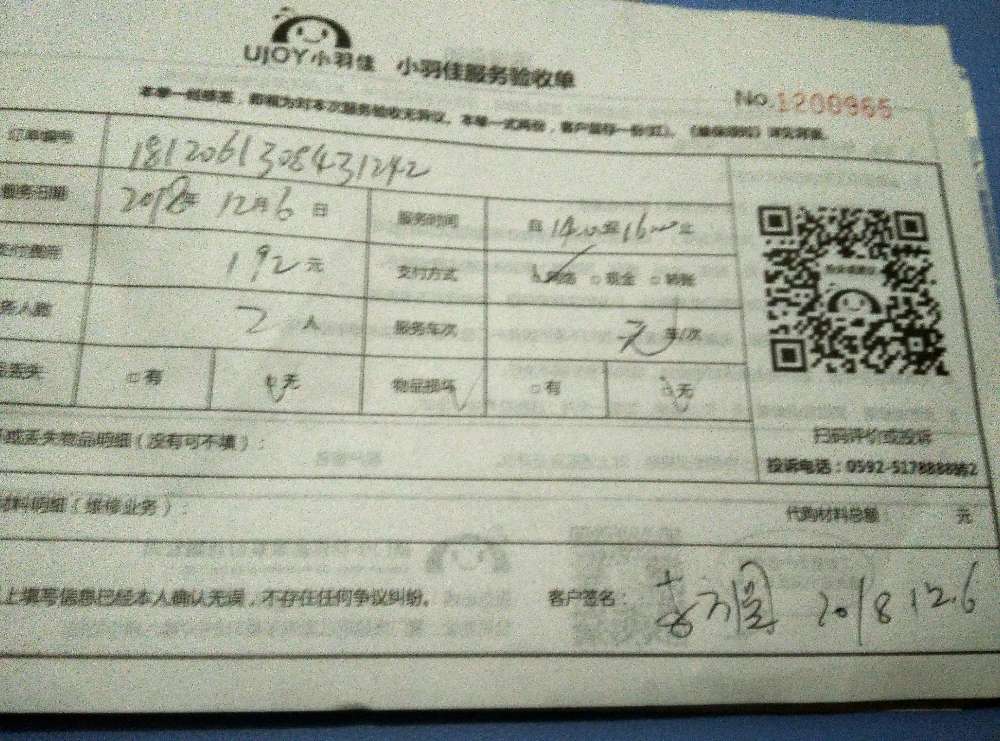 UJOY小羽佳 小羽佳服务验收单
No.1200965
本单一经签署，即视为对本次服务验收无异议。本单一式两份，客户留存一份(红)。
订单编号 181206130843 1242
服务日期 2018年 12月6日 服务时间 自14:00至16:00止
支付费用 192元 支付方式 网络 □现金 □转账
务人数 2人 服务车次 无 车/次
品丢失 □有 □无 物品损坏 □有 □无
或丢失物品明细（没有可不填）：
扫码评价或投诉
投诉电话：0592-5178888转2
材料明细（维修业务）： 代购材料总额： 元
上填写信息已经本人确认无误，不存在任何争议纠纷。 客户签名： 2018 12.6